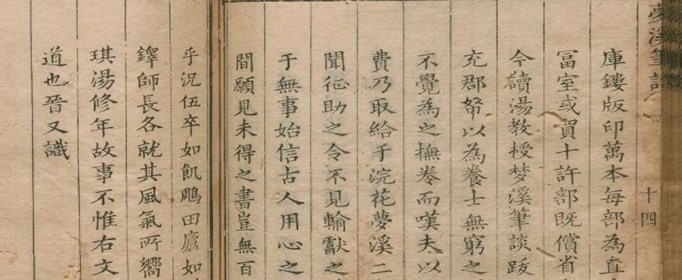 夢溪筆談 十四
庫鏤版印萬本每部為直
冨室或買十許部既償省
今讀湯教授梦溪筆談跋
充郡帑以為養士無窮之
不覺為之撫卷而嘆夫以
費乃取給于浣花夢溪二
聞征助之令不見輸獻之
于無事始信古人用心之
間願見未得之書豈無百
乎況伍卒如飢鵰田廬如
鐸師長各就其風氣所嚮
琪湯修年故事不惟右文
道也晉又識